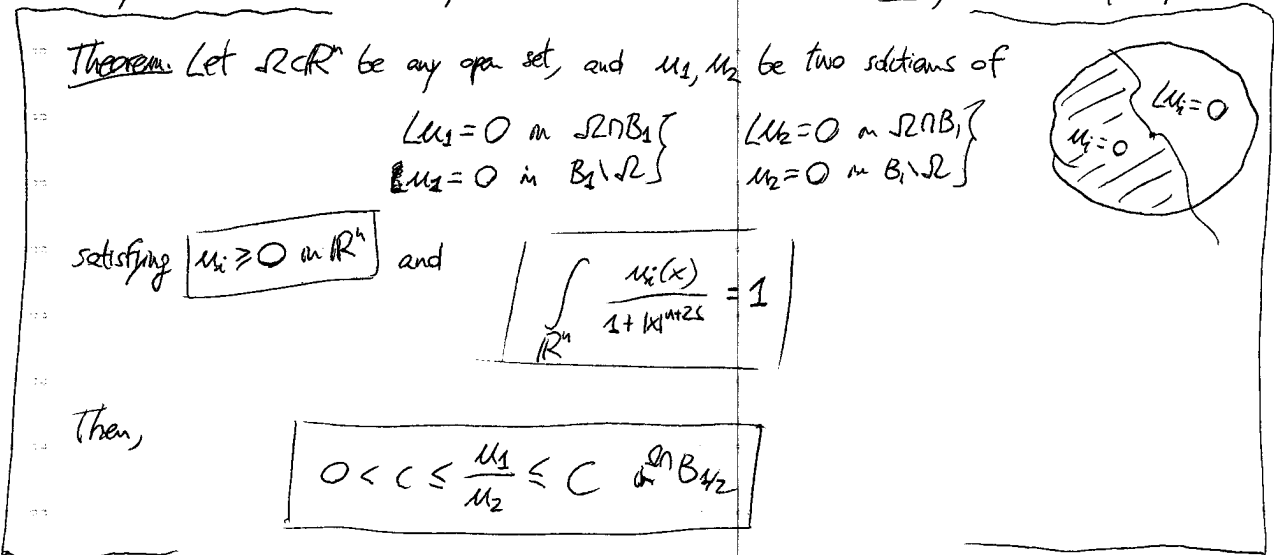 Theorem. Let Ω⊂ℝⁿ be any open set, and u₁, u₂ be two solutions of
Lu₁ = 0 in Ω∩B₁ } Lu₂ = 0 in Ω∩B₁ }
u₁ = 0 in B₁\Ω } u₂ = 0 in B₁\Ω }
Luᵢ = 0
uᵢ = 0
satisfying uᵢ ≥ 0 in ℝⁿ and ∫_{ℝⁿ} uᵢ(x) / (1+|x|^{n+2s}) = 1
Then,
0 < c ≤ u₁/u₂ ≤ C in Ω∩B_{1/2}